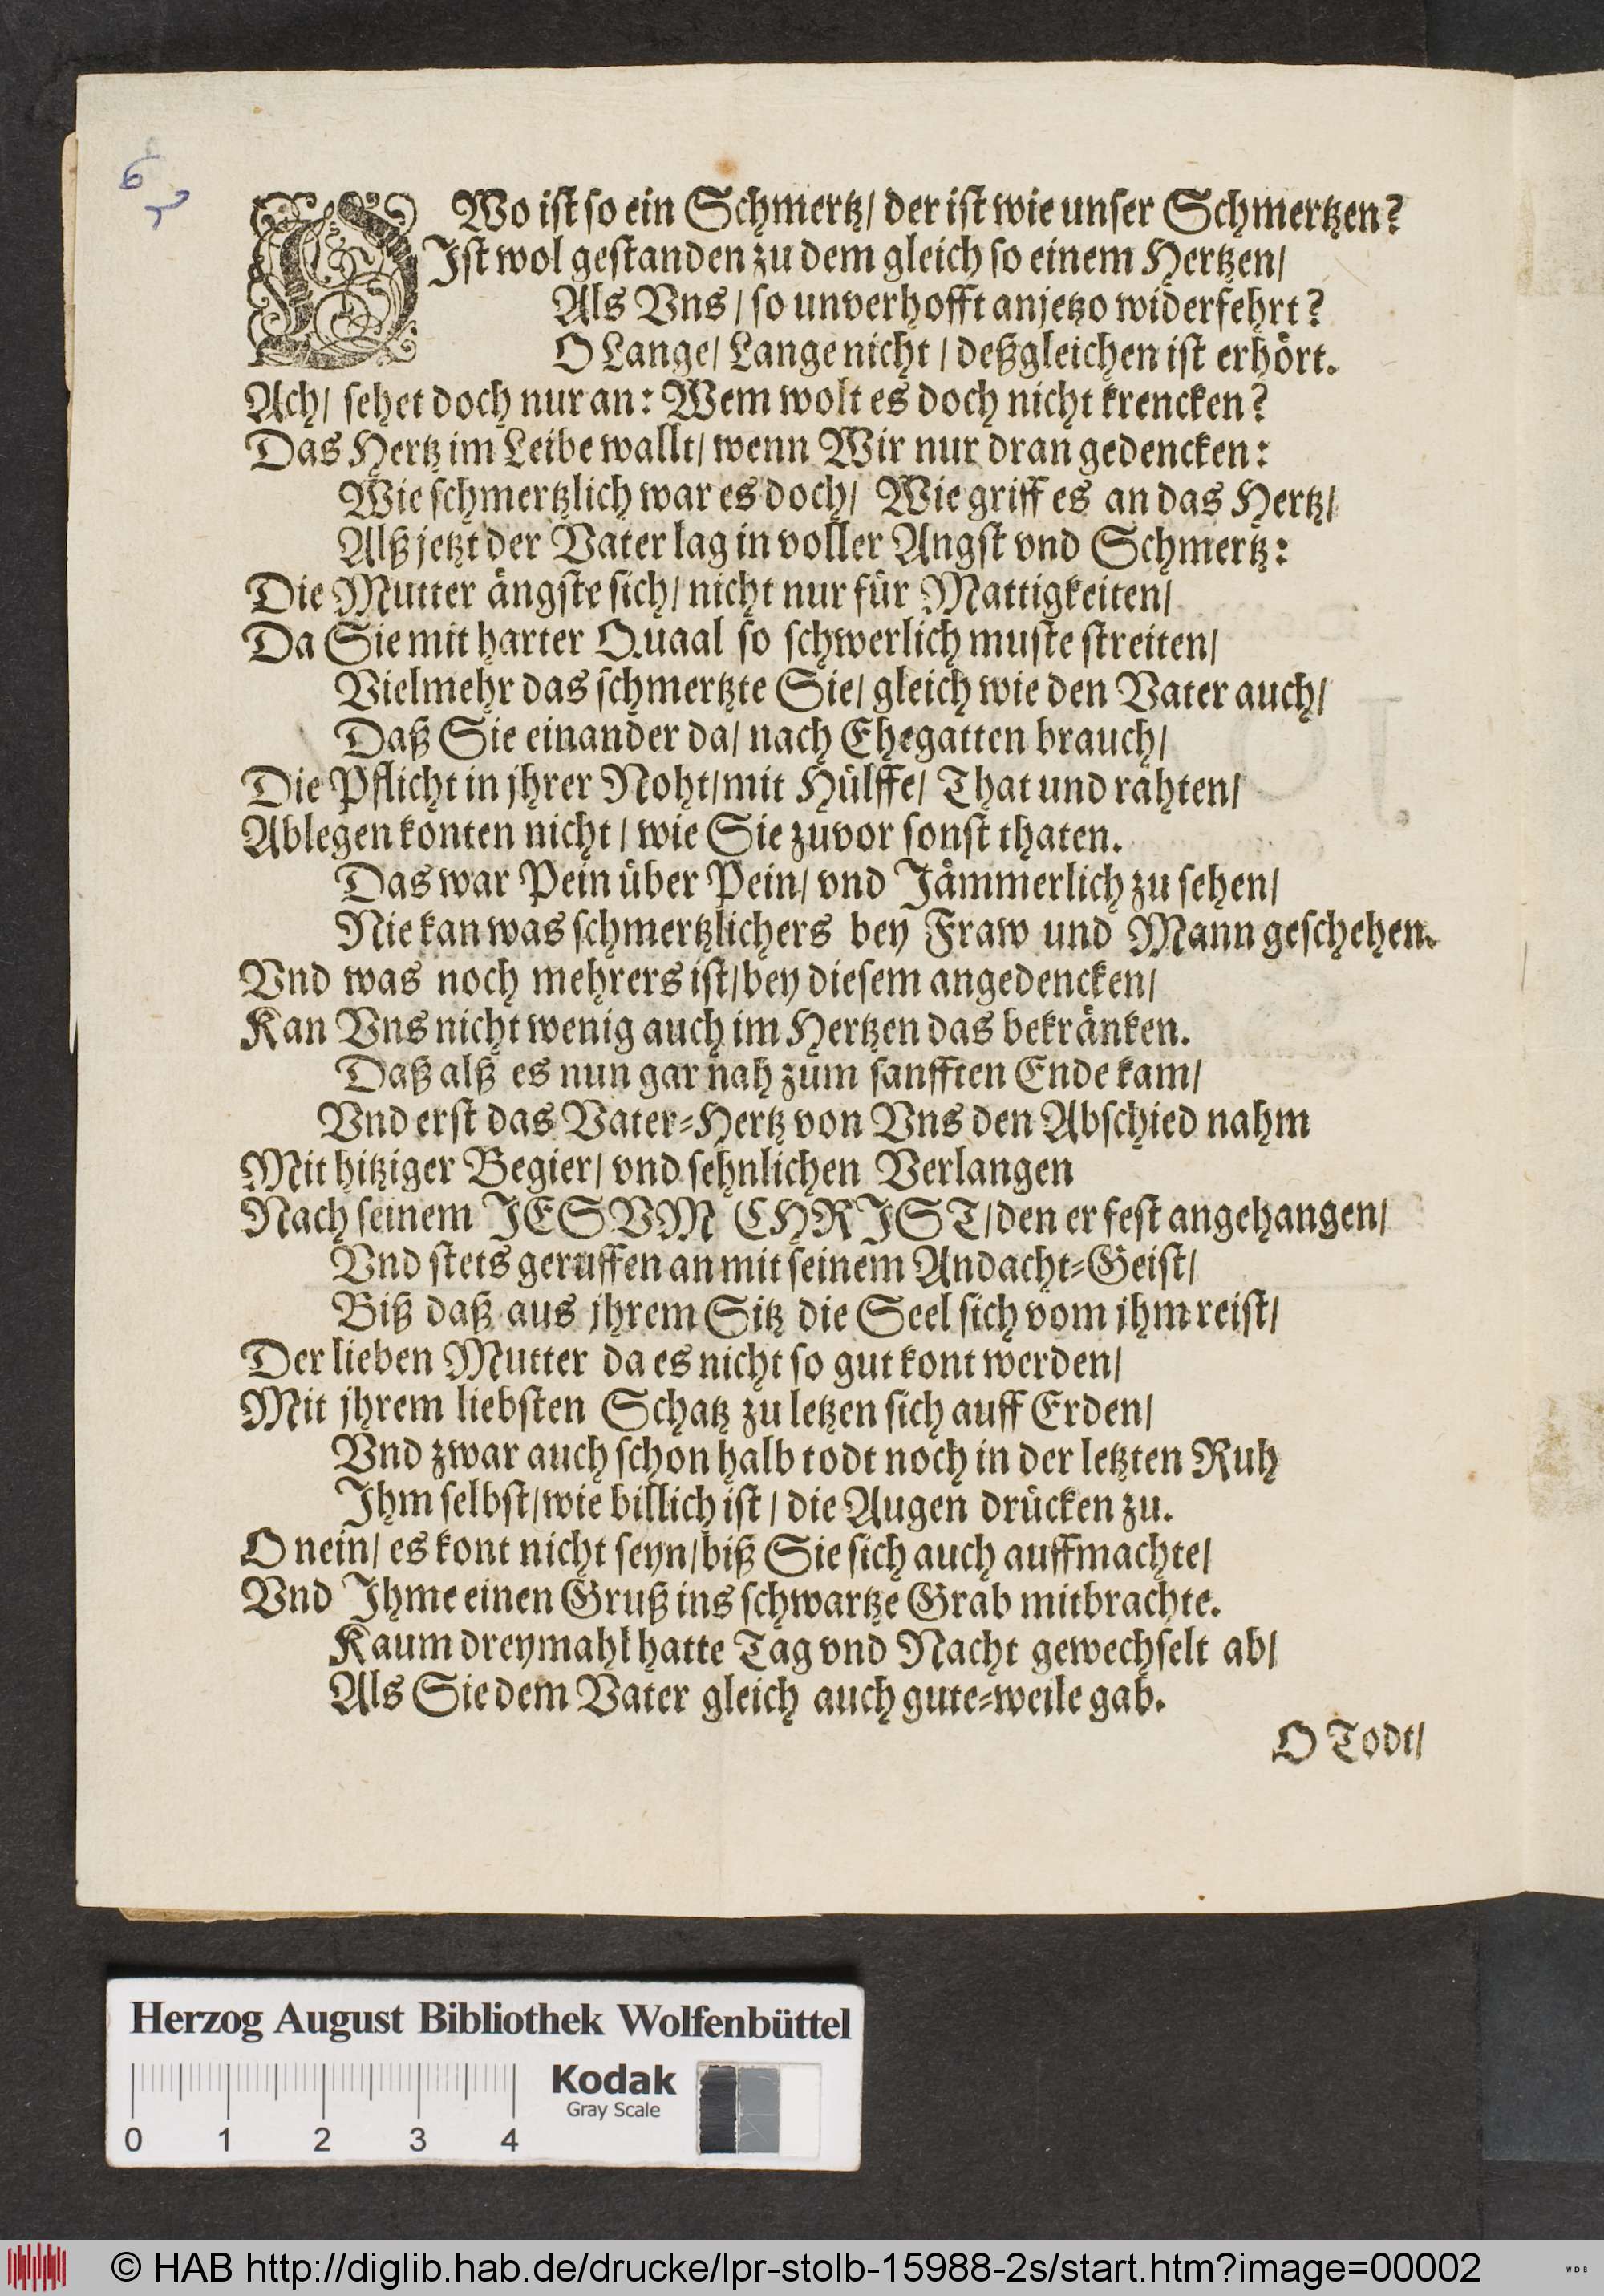 O Wo ist so ein Schmertz/ der ist wie unser Schmertzen?
Ist wol gestanden zu dem gleich so einem Hertzen/
Als Vns/ so unverhofft anjetzo widerfehrt?
O Lange/ Lange nicht/ deßgleichen ist erhört.
Ach/ sehet doch nur an: Wem wolt es doch nicht krencken?
Das Hertz im Leibe wallt/ wenn Wir nur dran gedencken:
Wie schmertzlich war es doch/ Wie griff es an das Hertz/
Alß jetzt der Vater lag in voller Angst vnd Schmertz:
Die Mutter ängste sich/ nicht nur für Mattigkeiten/
Da Sie mit harter Quaal so schwerlich muste streiten/
Vielmehr das schmertzte Sie/ gleich wie den Vater auch/
Daß Sie einander da/ nach Ehegatten brauch/
Die Pflicht in jhrer Noht/ mit Hülffe/ That und rahten/
Ablegen konten nicht/ wie Sie zuvor sonst thaten.
Das war Pein über Pein/ vnd Jämmerlich zu sehen/
Nie kan was schmertzlichers bey Fraw und Mann geschehen.
Vnd was noch mehrers ist/ bey diesem angedencken/
Kan Vns nicht wenig auch im Hertzen das bekränken.
Daß alß es nun gar nah zum sanfften Ende kam/
Vnd erst das Vater-Hertz von Vns den Abschied nahm
Mit hitziger Begier/ vnd sehnlichen Verlangen
Nach seinem JESVM CHRIST/ den er fest angehangen/
Vnd stets geruffen an mit seinem Andacht-Geist/
Biß daß aus jhrem Sitz die Seel sich vom jhm reist/
Der lieben Mutter da es nicht so gut kont werden/
Mit jhrem liebsten Schatz zu letzen sich auff Erden/
Vnd zwar auch schon halb todt noch in der letzten Ruh
Ihm selbst/ wie billich ist/ die Augen drücken zu.
O nein/ es kont nicht seyn/ biß Sie sich auch auffmachte/
Vnd Ihme einen Gruß ins schwartze Grab mitbrachte.
Kaum dreymahl hatte Tag vnd Nacht gewechselt ab/
Als Sie dem Vater gleich auch gute-weile gab.
O Todt/
Herzog August Bibliothek Wolfenbüttel
Kodak
Gray Scale
0 1 2 3 4
© HAB http://diglib.hab.de/drucke/lpr-stolb-15988-2s/start.htm?image=00002
WDB